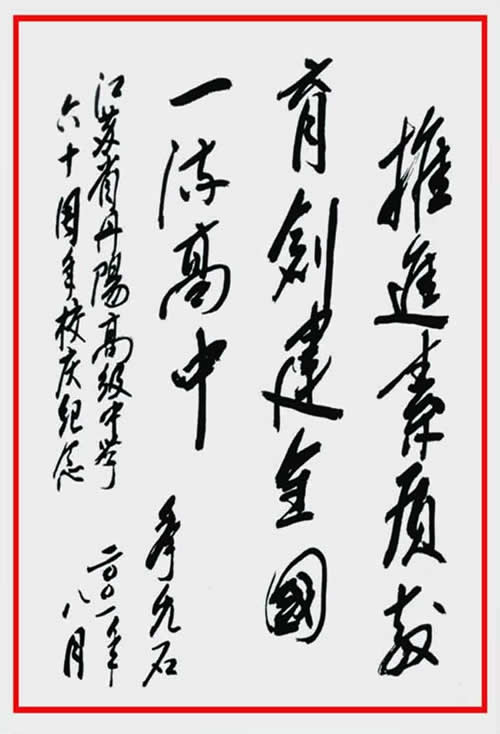 推進素质教
育創建全國
一流高中
江苏省丹陽高级中学
六十周年校庆纪念
季允石
二〇〇一年
八月